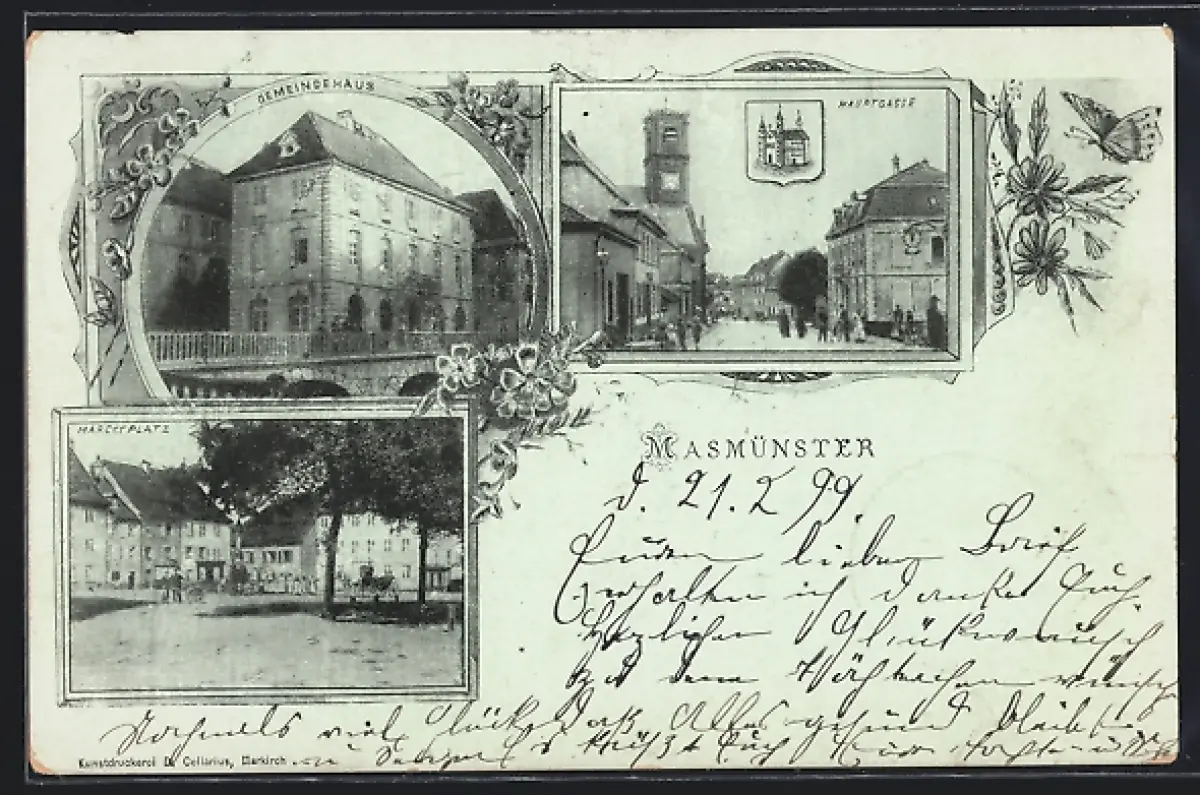 GEMEINDEHAUS
HAUPTGASSE
MARCKTPLATZ
MASMÜNSTER
d. 21.2 99.
lieben Brief
Erhalten ich danke Euch
Herzlichen Glückwunsch
zu dem Töchterchen wünsche
Nochmals viel Glück das Alles gesund bleibt
Grüßt Euch
Kunstdruckerei D. Cellarius, Markirch